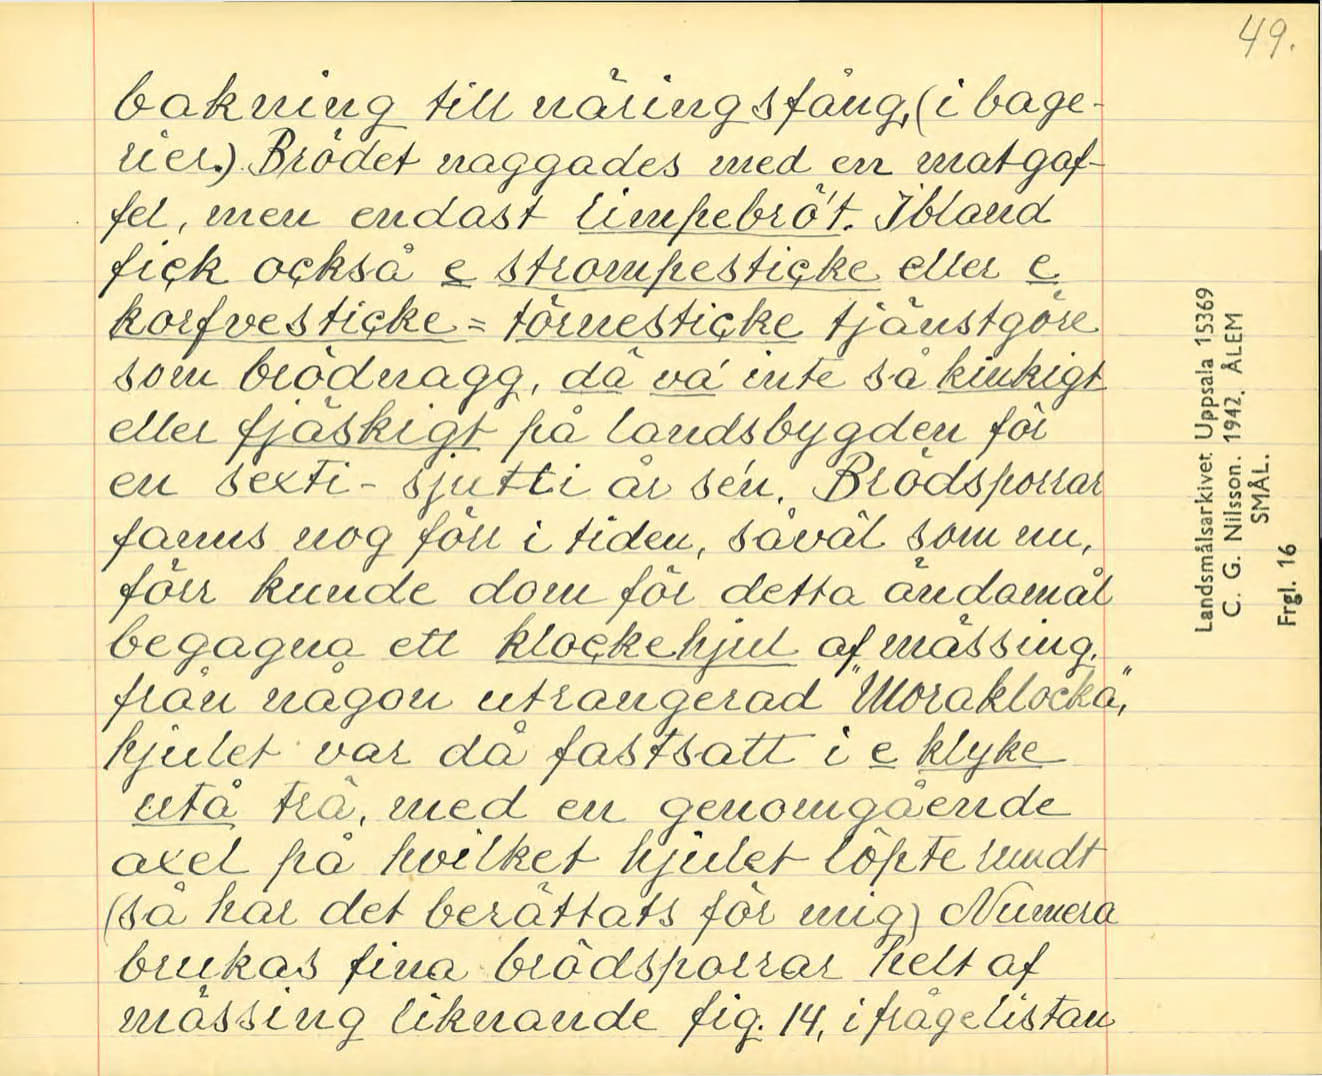 49.
bakning till näringsfång, (i bage-
rier.) Brödet naggades med en matgaf-
fel, men endast limpebrö't. Ibland
fick också e strompesticke eller e
korfvesticke = törnesticke tjänstgöre
som brödnagg, då va' inte så kinkigt
eller fjäskigt på landsbygden för
en sexti- sjutti år se'n. Brödsporrar
fanns nog förr i tiden, såväl som nu,
förr kunde dom för detta ändamål
begagna ett klockehjul af mässing,
från någon utrangerad "Moraklocka",
hjulet var då fastsatt i e klyke
utå trä, med en genomgående
axel på hvilket hjulet löpte rundt
(så har det berättats för mig) Numera
brukas fina brödsporrar helt af
mässing liknande fig. 14, i frågelistan
Landsmålsarkivet Uppsala 15369
C. G. Nilsson. 1942. ÅLEM
SMÅL.
Frgl. 16